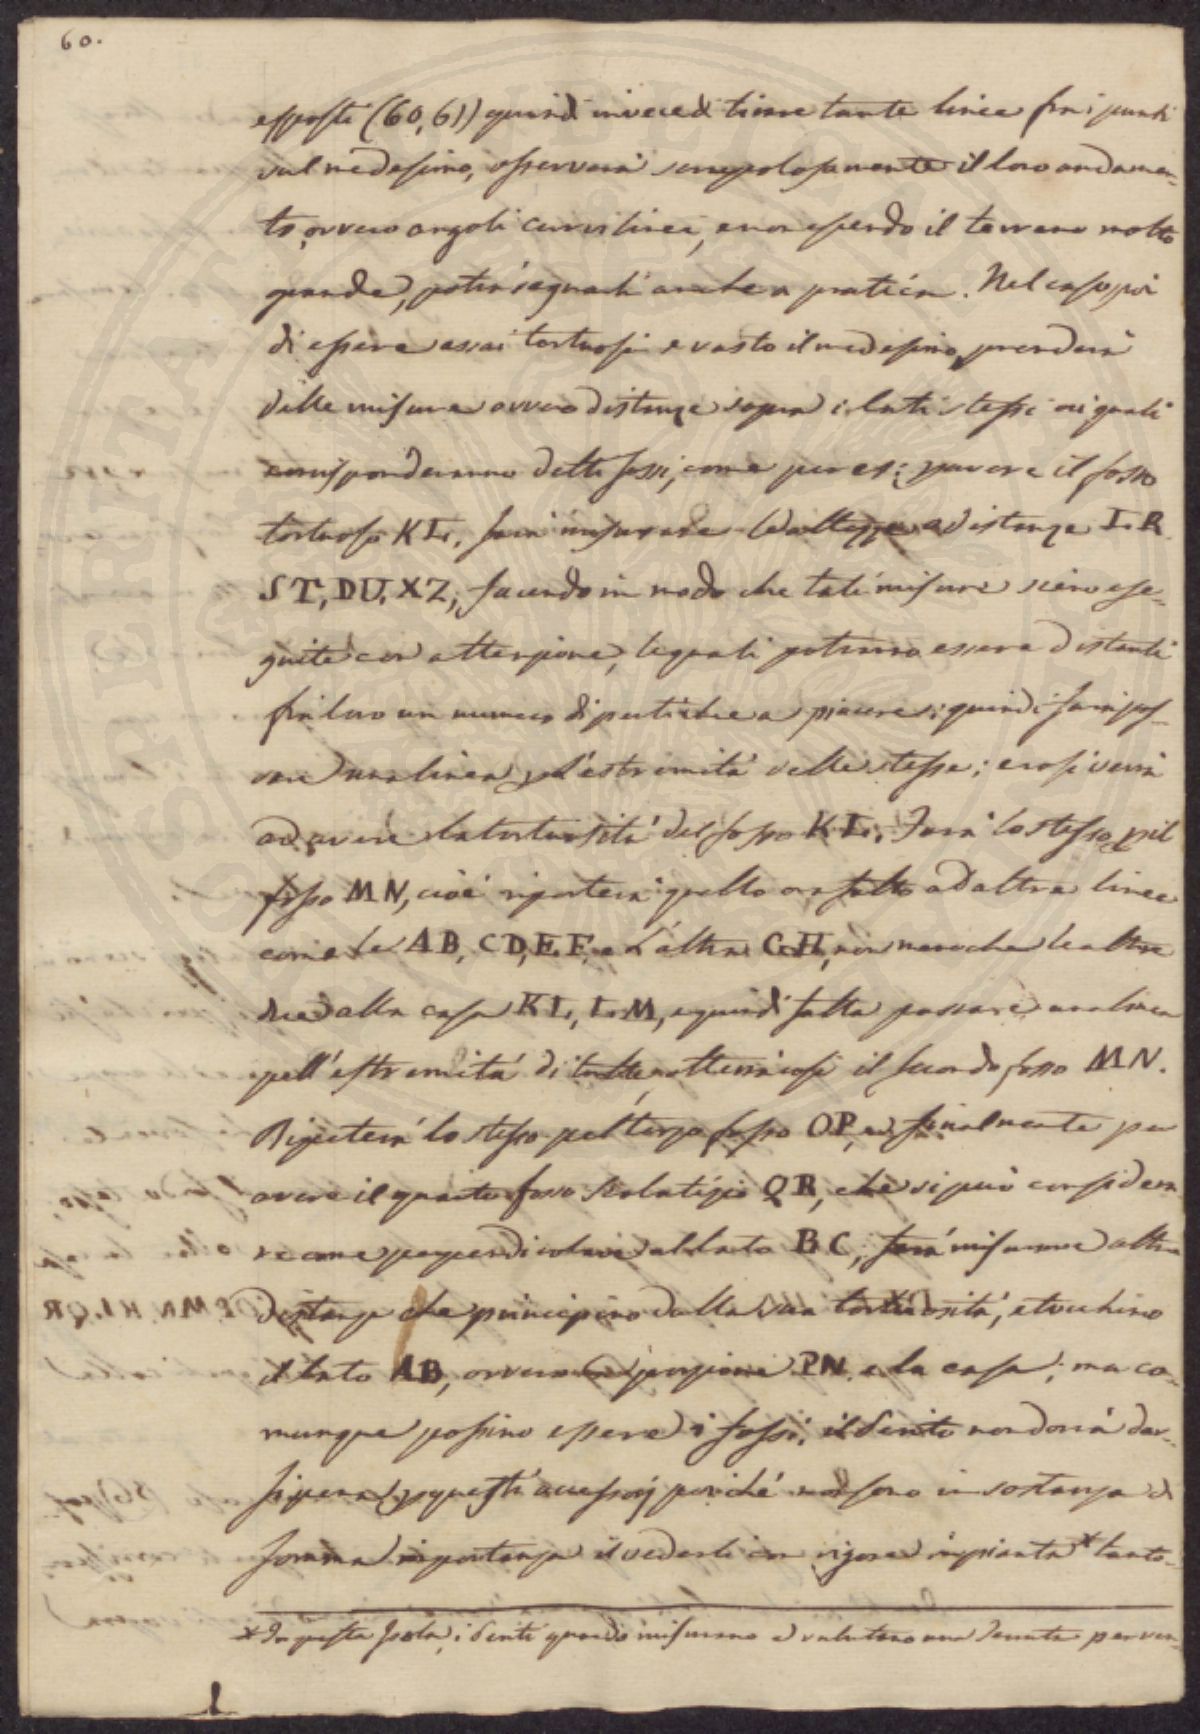 60.
esposte (60, 61) quindi invece di tirare tante linee fra i punti
sul medesimo, osserverà scrupolosamente il loro andamen-
to ovvero angoli curvilinei, e non essendo il terreno molto
grande, potrà segnarli anche a pratica. Nel caso poi
di essere assai tortuosi e vasto il medesimo, prenderà
delle misure ovvero distanze sopra i lati stessi ai quali
corrisponderanno detti fossi, come per es: per avere il fosso
tortuoso KL, farà misurare le distanze I.R
ST, DU, XZ, facendo in modo che tali misure sieno ese-
guite con attenzione, le quali potranno essere distanti
fra loro un numero di pertiche a piacere; quindi farà pas-
sare una linea p l'estremità delle stesse; e così verrà
ad avere la tortuosità del fosso KL. Farà lo stesso pel
fosso MN, cioè riporterà quello or fatto ad altre linee
come le AB, CD, E.F, e l'altra G.H, non meno che le altre
due dalla casa KL, L.M, e quindi fatta passare una linea
pell'estremità di tutte otterrà così il secondo fosso MN.
Ripeterà lo stesso pel terzo fosso OP, e finalmente per
avere il quarto fosso scolatizio QR, che si può considera-
re come perpendicolare al lato BC, farà misurare altre
distanze che principino dalla sua tortuosità, e tocchino
il lato AB, ovvero porzione PN e la casa; ma co-
munque possino essere i fossi, il Perito non dovrà dar-
si pena p questi accessorj poiché non sono in sostanza di
somma importanza il vederli con rigore in pianta * tanto
* In questa Isola, i Periti quando misurano e valutano una Tenuta per ven-